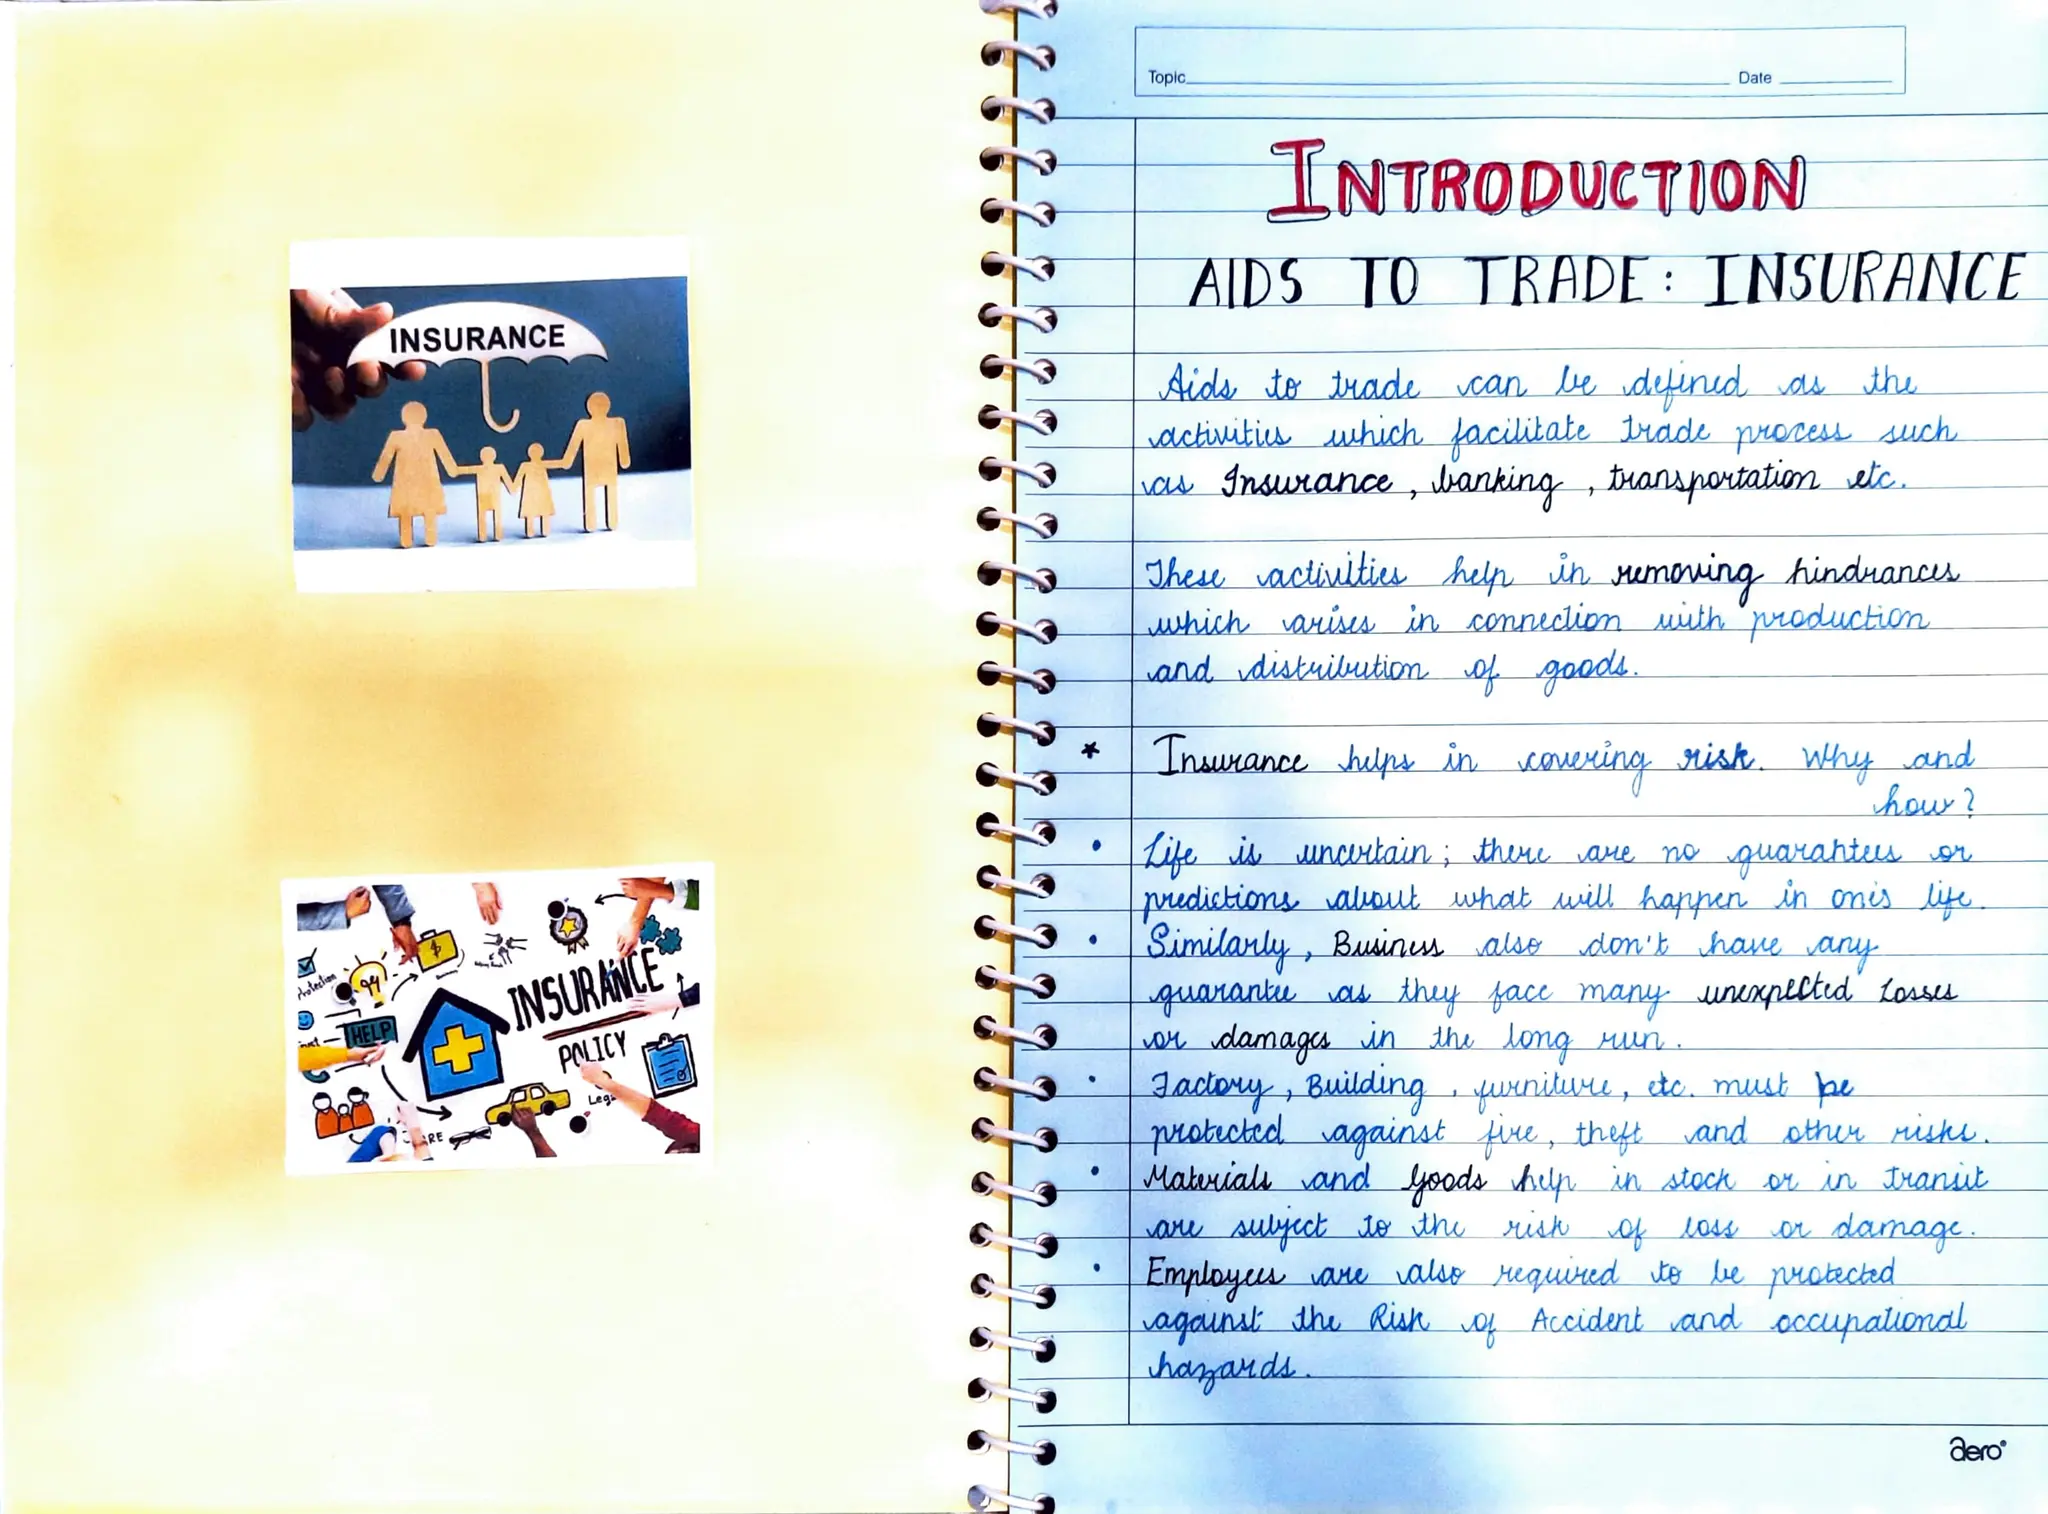 INSURANCE
INSURANCE
POLICY
HELP
Topic
Date
INTRODUCTION
AIDS TO TRADE: INSURANCE
Aids to trade can be defined as the
activities which facilitate trade process such
as Insurance, banking, transportation etc.
These activities help in removing hindrances
which arises in connection with production
and distribution of goods.
* Insurance helps in covering risk. Why and
how?
• Life is uncertain; there are no guarantees or
predictions about what will happen in one's life.
• Similarly, Business also don't have any
guarantee as they face many unexpected losses
or damages in the long run.
• Factory, Building, furniture, etc. must be
protected against fire, theft and other risks.
• Materials and Goods help in stock or in transit
are subject to the risk of loss or damage.
• Employees are also required to be protected
against the Risk of Accident and occupational
hazards.
aero